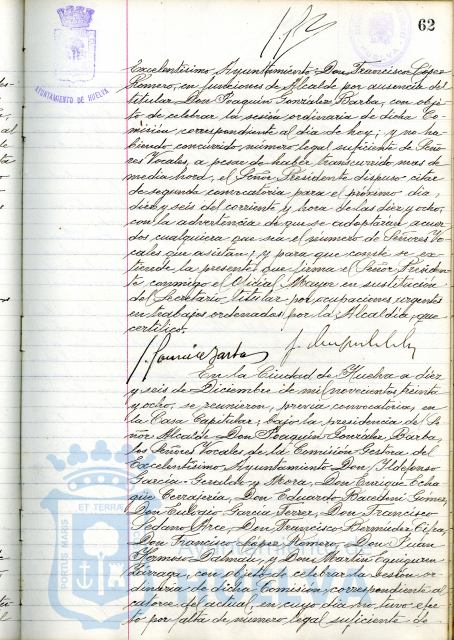 62
AYUNTAMIENTO DE HUELVA
Excelentísimo Ayuntamiento Don Francisco López
Romero, en funciones de Alcalde por ausencia del
titular Don Joaquín González Barba, con obje
to de celebrar la sesión ordinaria de dicha Co
misión correspondiente al día de hoy; y no ha
biendo concurrido número legal suficiente de Seño
res Vocales, a pesar de haber transcurrido mas de
media hora, el Señor Presidente dispuso citar
de segunda convocatoria para el próximo día
diez y seis del corriente, y hora de las diez y ocho,
con la advertencia de que se adoptarán acuer
dos cualquiera que sea el número de Señores Vo
cales que asistan; y para que conste se ex
tiende la presente que firma el Señor Presiden
te conmigo el Oficial Mayor en sustitución
del Secretario titular por ocupaciones urgentes
en trabajos ordenados por la Alcaldía, que
certifico.
En la Ciudad de Huelva a diez
y seis de Diciembre de mil novecientos treinta
y ocho, se reunieron, previa convocatoria, en
la Casa Capitular, bajo la presidencia del Se
ñor Alcalde Don Joaquín González Barba,
los Señores Vocales de la Comisión Gestora del
Excelentísimo Ayuntamiento Don Ildefonso
García y Mora, Don Enrique Echa
güe Cerrajería, Don Eduardo Gómez,
Don Eulogio García Ferrer, Don Francisco
Arce, Don Francisco Bermúdez Cifra,
Don Francisco López Romero, Don Juan
Dalmau, y Don Martín Eguiguren
con objeto de celebrar la sesión or
dinaria de dicha Comisión, correspondiente al
catorce del actual, en cuyo día no tuvo efec
to por falta de número legal suficiente de
PORTUS MARIS ET TERRÆ
Ayuntamiento de
HUELVA